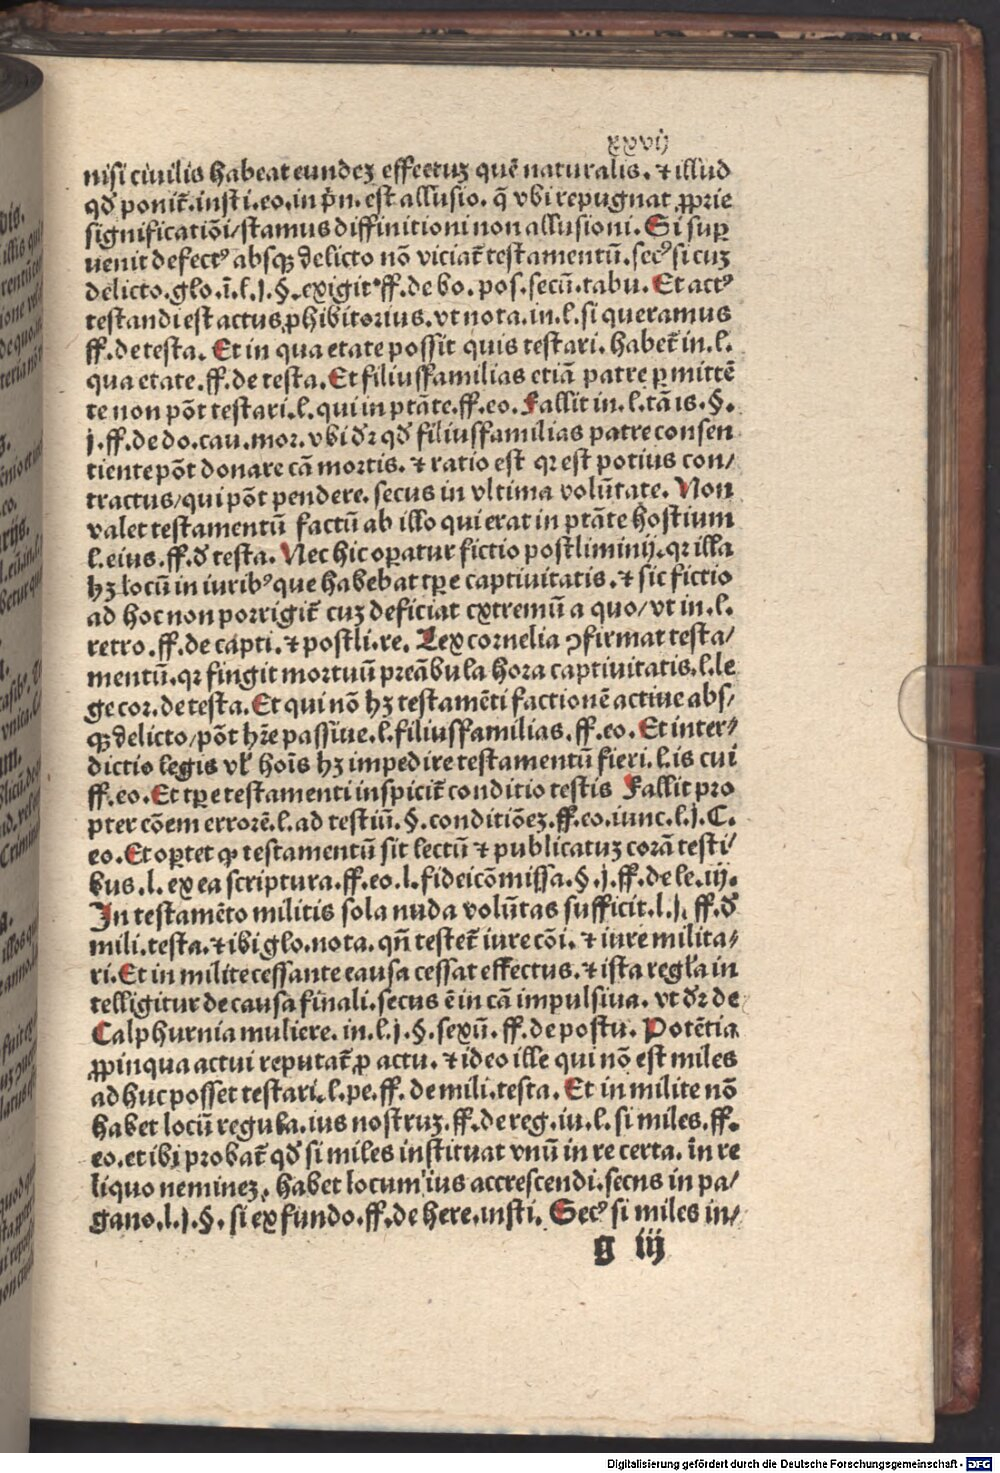 xxvij
nisi ciuilis habeat eundeʒ effectuʒ quē naturalis. ⁊ illud
qđ ponit̄. insti. eo. in p̄n. est allusio. q̄ vbi repugnat ꝓprie
significatiōi/ stamus diffinitioni non allusioni. Si suꝑ
uenit defectꝰ absqꝫ delicto nō viciat̄ testamentū. secꝰ si cuʒ
delicto. glo. ī. l. j. §. exigit ff. de bo. pos. secū. tabu. Et actꝰ
testandi est actus ꝓhibitorius. vt nota. in. l. si queramus
ff. de testa. Et in qua etate possit quis testari. habet̄ in. l.
qua etate. ff. de testa. Et filiusfamilias etiā patre ꝑmittē
te non pōt testari. l. qui in ptāte. ff. eo. Fallit in. l. tā is. §.
j. ff. de do. cau. mor. vbi dꝛ qđ filiusfamilias patre consen
tiente pōt donare cā mortis. ⁊ ratio est qꝛ est potius con/
tractus/ qui pōt pendere. secus in vltima volūtate. Non
valet testamentū factū ab illo qui erat in ptāte hostium
l. eius. ff. đ testa. Nec hic oꝑatur fictio postliminij. qꝛ illa
hʒ locū in iuribꝰ que habebat tꝑe captiuitatis. ⁊ sic fictio
ad hoc non porrigit̄ cuʒ deficiat extremū a quo/ vt in. l.
retro. ff. de capti. ⁊ postli. re. Lex cornelia ꝯfirmat testa/
mentū. qꝛ fingit mortuū preābula hora captiuitatis. l. le
ge cor. de testa. Et qui nō hʒ testamēti factionē actiue abs/
qꝫ delicto/ pōt hr̄e passiue. l. filiusfamilias. ff. eo. Et inter/
dictio legis vl̄ hoīs hʒ impedire testamentū fieri. l. is cui
ff. eo. Et tꝑe testamenti inspicit̄ conditio testis Fallit pro
pter cōem errorē. l. ad testiū. §. conditiōeʒ. ff. eo. iunc. l. j. C.
eo. Et oꝑtet ꝙ testamentū sit lectū ⁊ publicatuʒ corā testi/
bus. l. ex ea scriptura. ff. eo. l. fideicōmissa. §. j. ff. de le. iij.
In testamēto militis sola nuda volūtas sufficit. l. j. ff. đ
mili. testa. ⁊ ibi glo. nota. qn̄ testet̄ iure cōi. ⁊ iure milita/
ri. Et in milite cessante causa cessat effectus. ⁊ ista regl̄a in
telligitur de causa finali. secus ē in cā impulsiua. vt dꝛ de
Calphurnia muliere. in. l. j. §. sexū. ff. de postu. Potētia
ꝓpinqua actui reputat̄ ꝓ actu. ⁊ ideo ille qui nō est miles
ad huc posset testari. l. pe. ff. de mili. testa. Et in milite nō
habet locū regula. ius nostruʒ. ff. de reg. iu. l. si miles. ff.
eo. et ibi probat̄ qđ si miles instituat vnū in re certa. in re
liquo nemineʒ. habet locum ius accrescendi. secus in pa/
gano. l. j. §. si ex fundo. ff. de here. insti. Secꝰ si miles in/
g iij
Digitalisierung gefördert durch die Deutsche Forschungsgemeinschaft - DFG